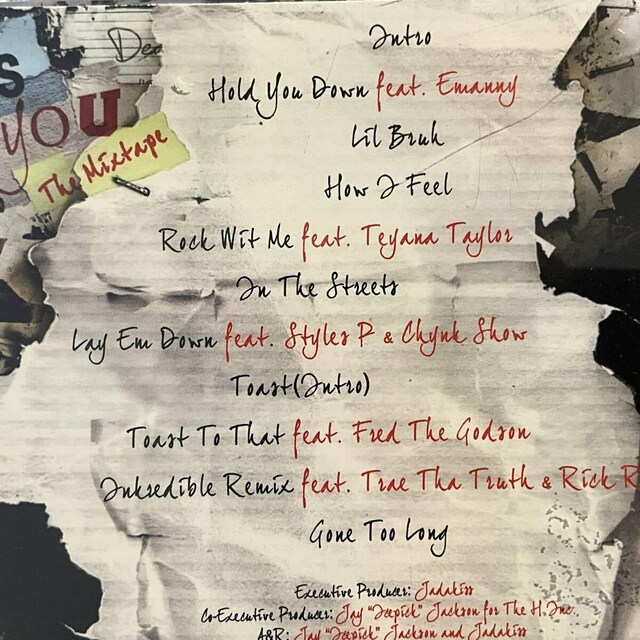 Dea
S
YOU
The Mixtape
Intro
Hold You Down feat. Emanny
Lil Bruh
How I Feel
Rock Wit Me feat. Teyana Taylor
In The Streets
Lay Em Down feat. Styles P & Chynk Show
Toast(Intro)
Toast To That feat. Fred The Godson
Inkredible Remix feat. Trae Tha Truth & Rick R
Gone Too Long
Executive Producer: Jadakiss
Co-Executive Producer: Jay "Icepick" Jackson for The H.Inc.
A&R: Jay "Icepick" Jackson and Jadakiss